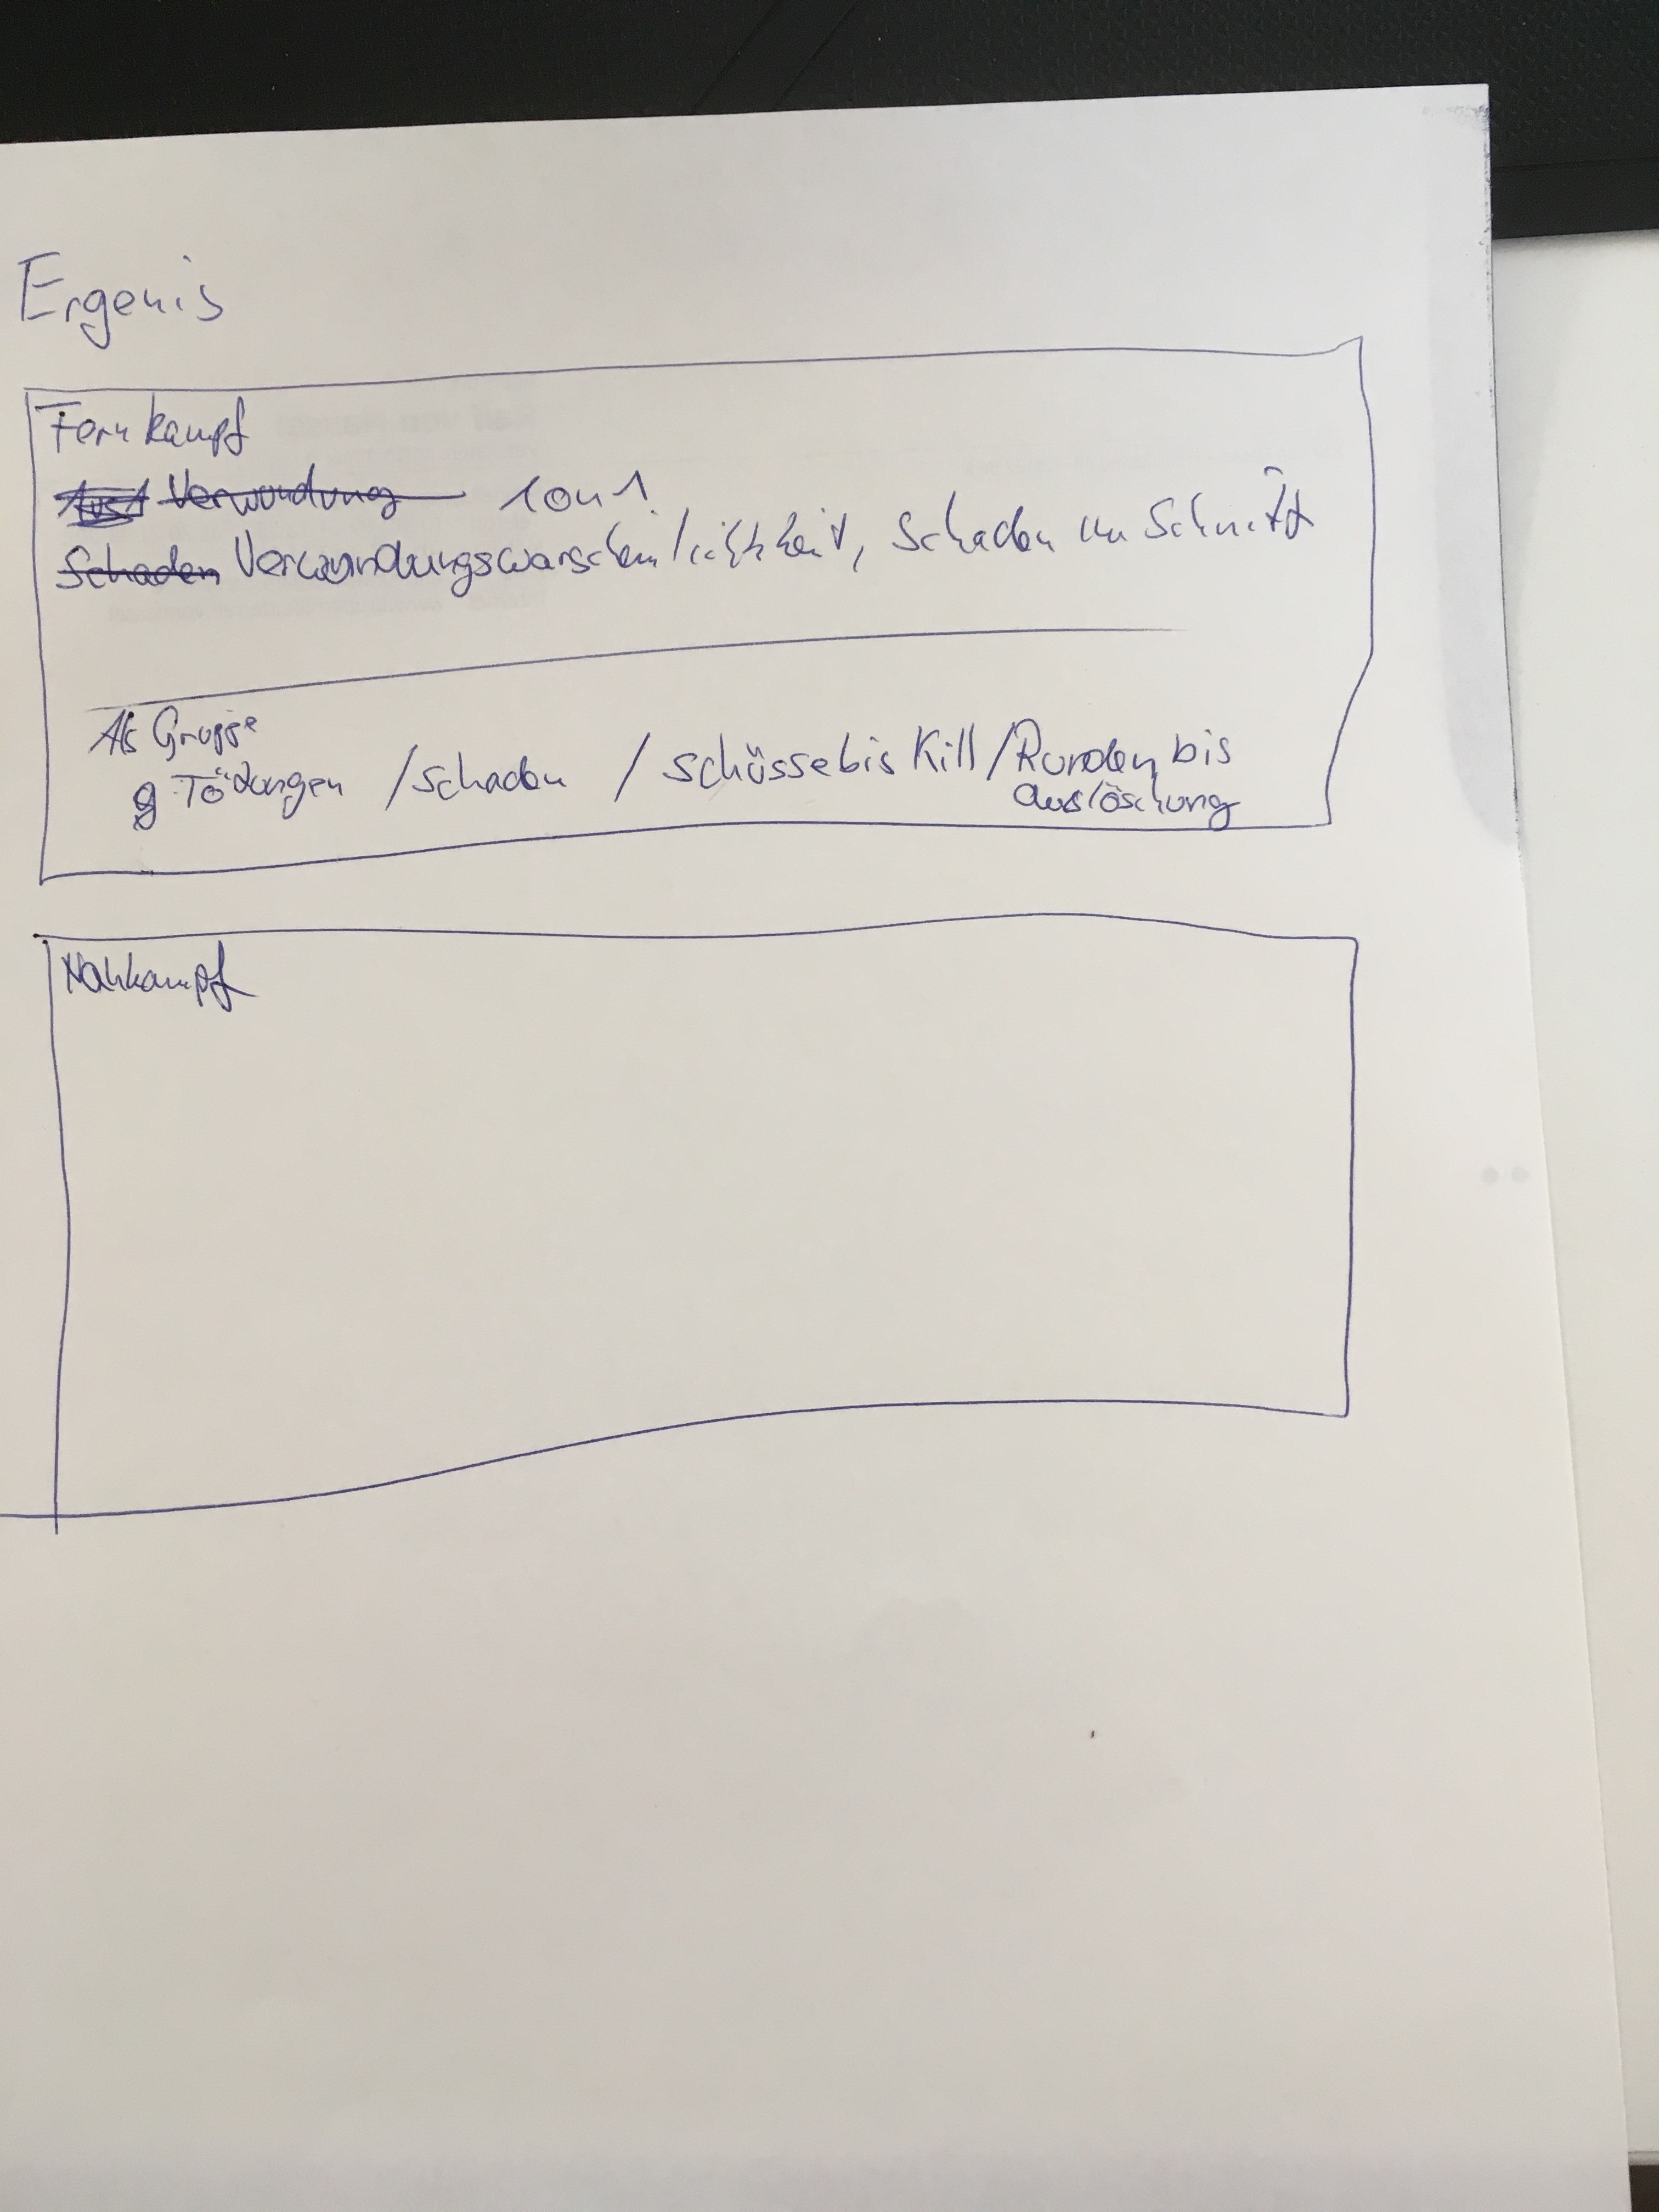 Ergenis
Fernkampf
Verwundung 1on1
Schaden Verwundungswarscheinlichkeit, Schaden im Schnitt
Als Gruppe
g Tötungen / Schaden / Schüsse bis Kill / Runden bis
auslöschung
Nahkampf